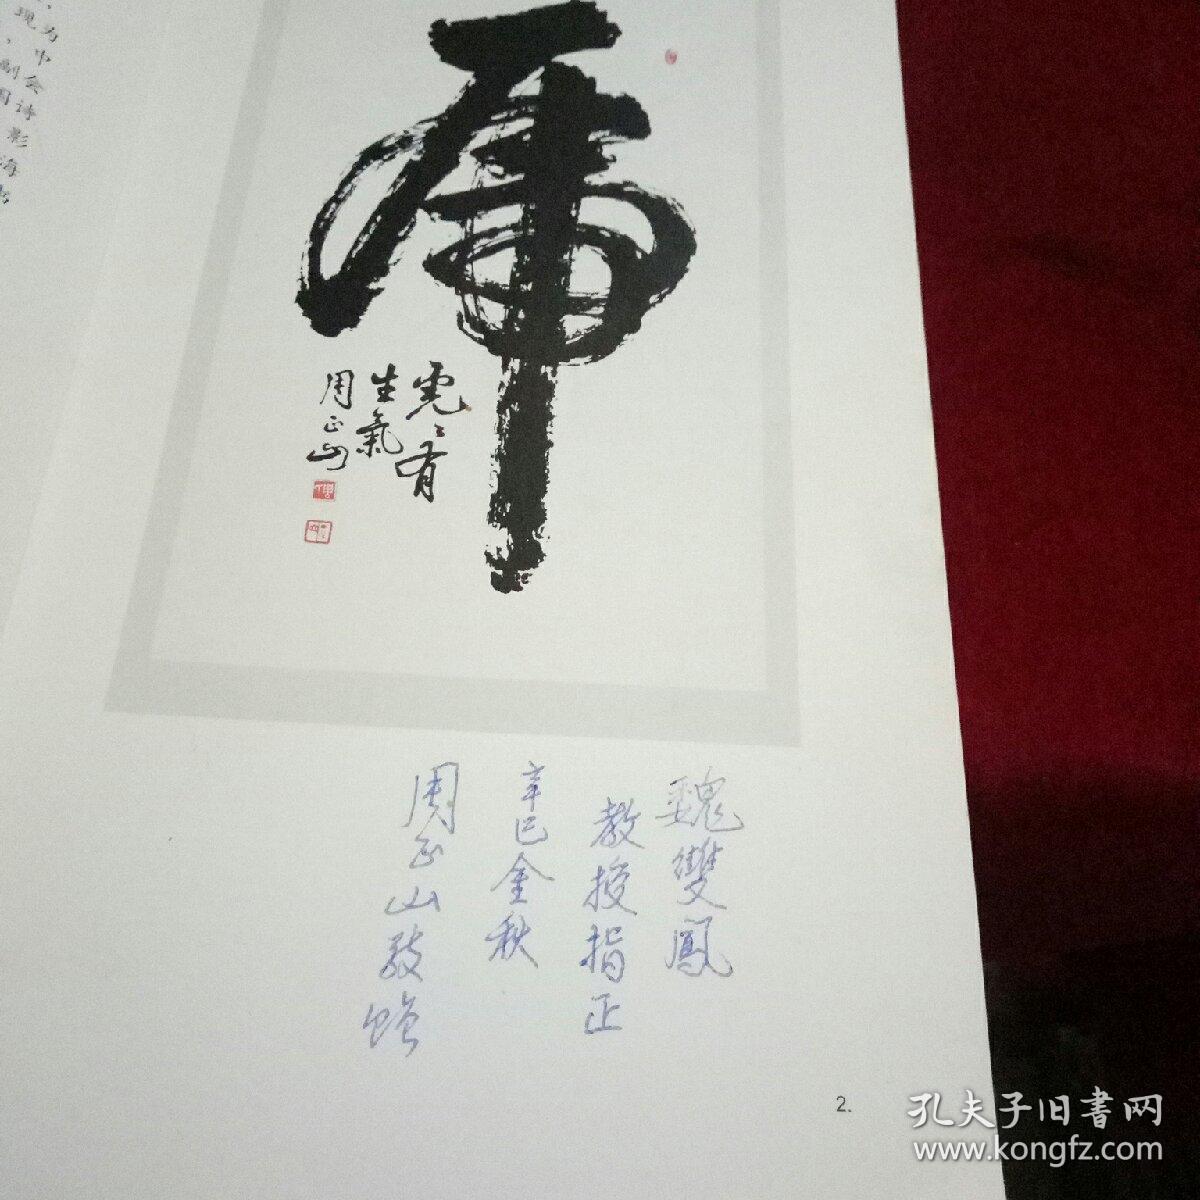 虎
虎〻有
生氣
周正山
魏雙鳳
教授指正
辛巳金秋
周正山敬贈
2.
孔夫子旧書网
www.kongfz.com